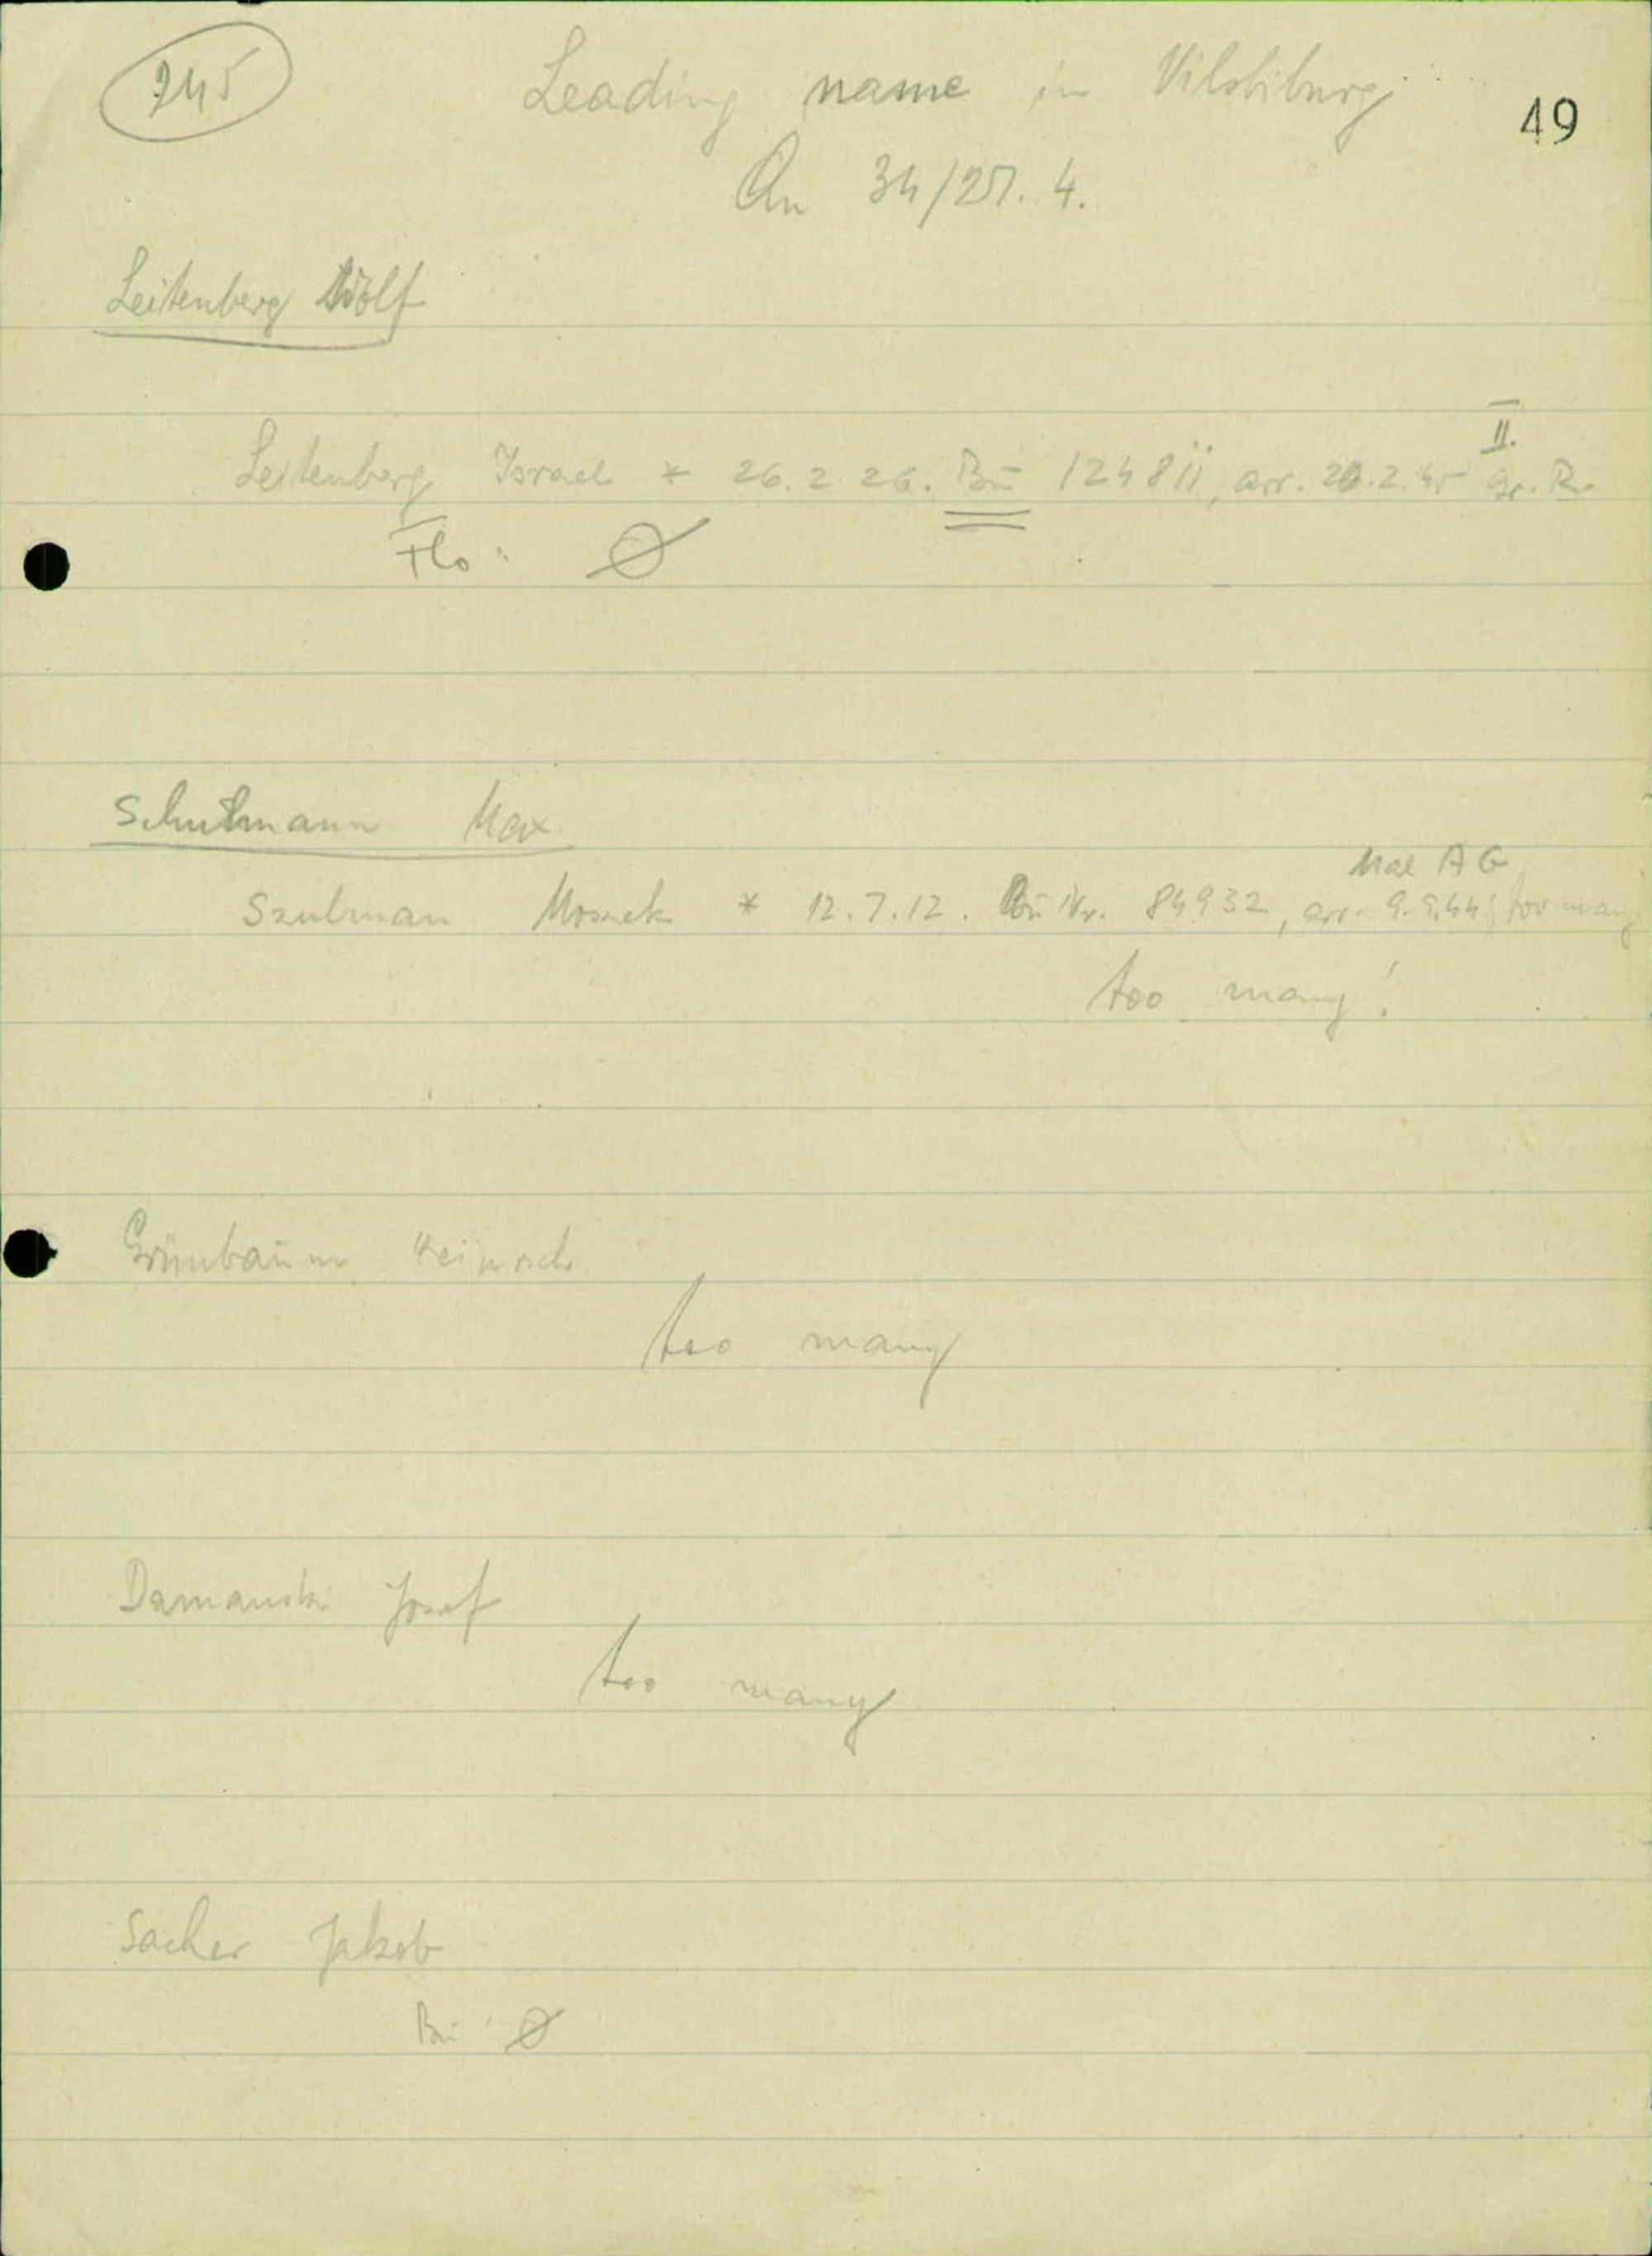 245
Leading name in Vilsbiburg
49
An 34/27. 4.
Leitenberg Adolf
II.
Leitenberg Israel * 26.2.26. Bu 124811, arr. 20.2.45 Gr. R.
Flo: Ø
Schutmann Max
AG
Szulman Moszek * 12.7.12. Bu Nr. 84932, arr. 9.9.44; too many
too many!
Grünbaum Heinrich
too many
Damanski Josef
too many
Sacher Jakob
Bu: Ø